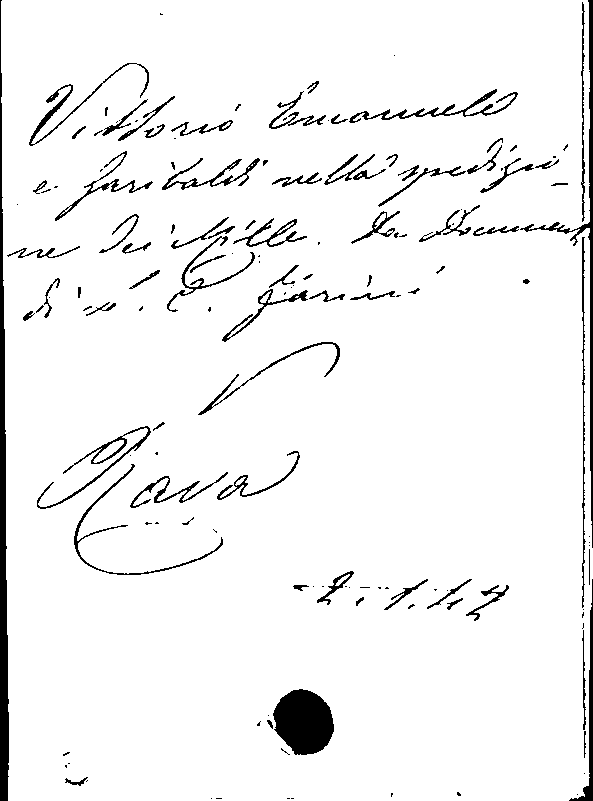 Vittorio Emanuele
e Garibaldi nella spedizio-
ne dei Mille. Da Document
di L. C. Farini
V
Rava